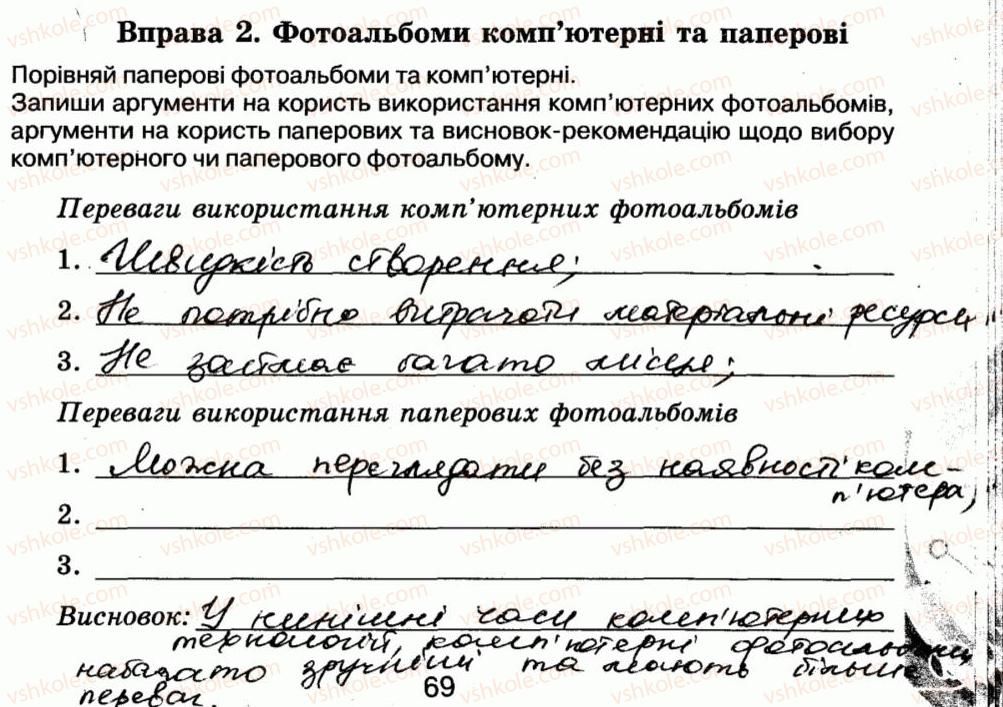 Вправа 2. Фотоальбоми комп'ютерні та паперові
Порівняй паперові фотоальбоми та комп'ютерні.
Запиши аргументи на користь використання комп'ютерних фотоальбомів,
аргументи на користь паперових та висновок-рекомендацію щодо вибору
комп'ютерного чи паперового фотоальбому.
Переваги використання комп'ютерних фотоальбомів
1. Швидкість створення;
2. Не потрібно витрачати матеріальні ресурси
3. Не займає багато місця;
Переваги використання паперових фотоальбомів
1. Можна переглядати без наявності ком-
п'ютера,
2.
3.
Висновок: У нинішні часи комп'ютерних
технологій, комп'ютерні фотоальбоми
набагато зручніши та мають більше
переваг.
69